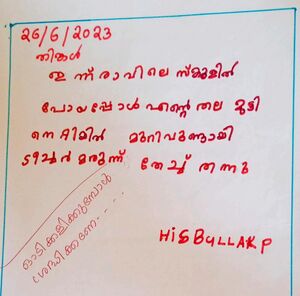 26/6/2023
തിങ്കൾ
ഇന്ന് രാവിലെ സ്കൂളിൽ
പോയപ്പോൾ എന്റെ തല മുടി
മുറിവുണ്ടായി
ടീച്ചർ മരുന്ന് തേച്ച് തന്നു
HiSBULLAK P
ഓടിക്കളിക്കുമ്പോൾ
ശ്രദ്ധിക്കണേ.....